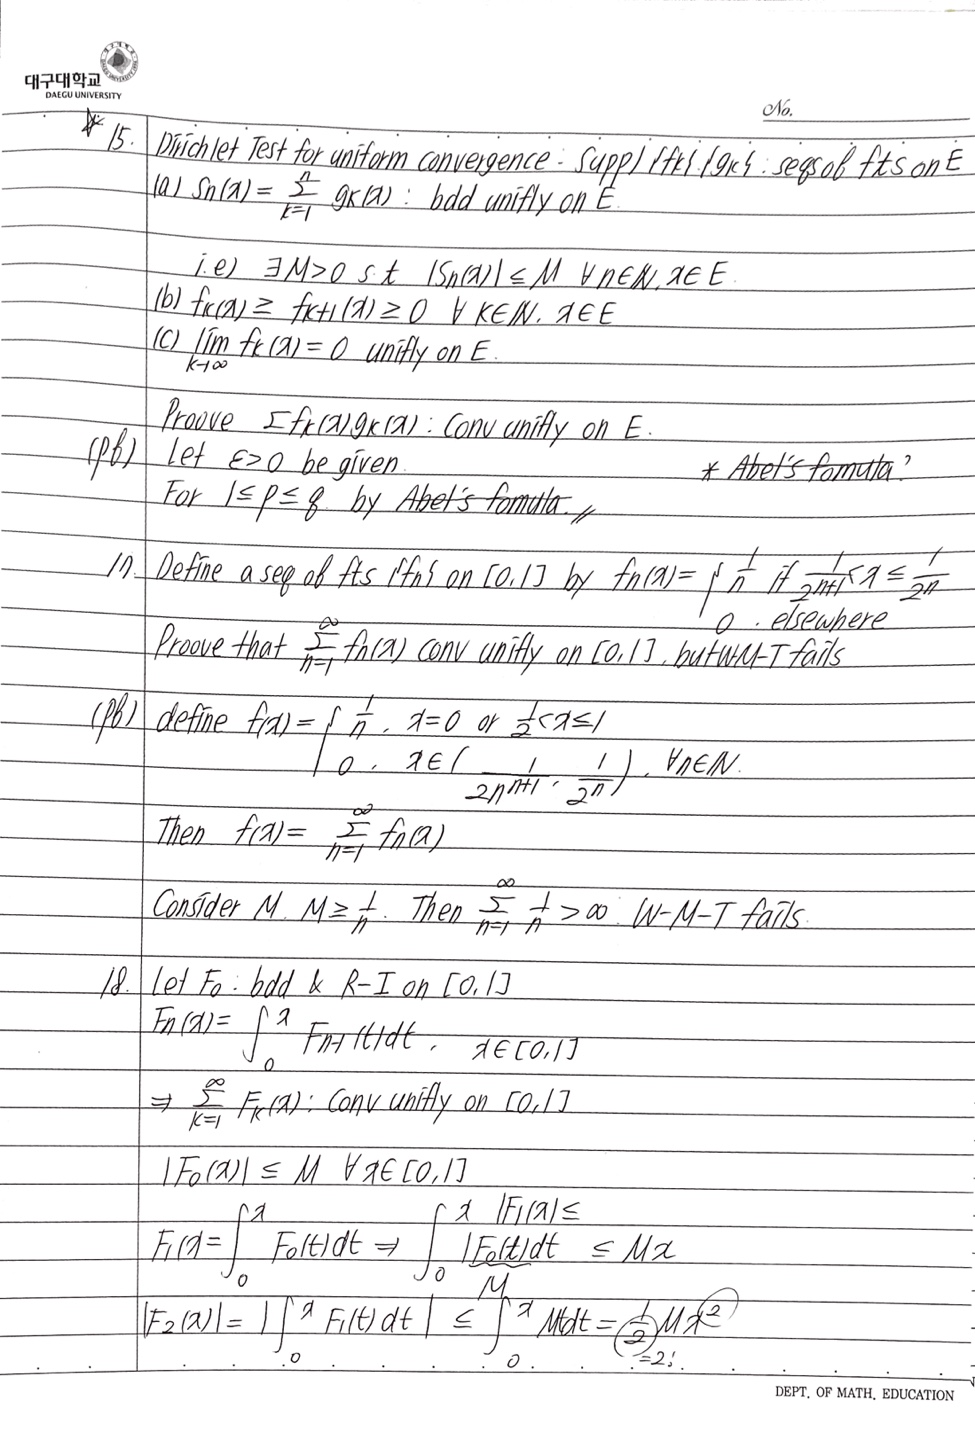 대구대학교
DAEGU UNIVERSITY
No.
15. Dirichlet Test for uniform convergence : Supp) {fk} {gk} : seqs of fts on E
(a) Sn(x) = Σ_{k=1}^{n} gk(x) : bdd unifly on E.
i.e) ∃M>0 s.t |Sn(x)| ≤ M ∀n∈N, x∈E
(b) fk(x) ≥ fk+1(x) ≥ 0 ∀ k∈N, x∈E
(c) lim_{k→∞} fk(x) = 0 unifly on E.
Proove Σfk(x)gk(x) : Conv unifly on E.
(pf) Let ε>0 be given. * Abel's fomula?
For 1≤p≤q by Abel's fomula. //
17. Define a seq of fts {fn} on [0,1] by fn(x) = { 1/n if 1/2^{n+1} < x ≤ 1/2^n
0 . elsewhere
Proove that Σ_{n=1}^{∞} fn(x) conv unifly on [0,1], but W-M-T fails
(pf) define f(x) = { 1/n , x=0 or 1/2<x≤1
0 , x∈( 1/2n^{n+1} , 1/2^n ) , ∀n∈N.
Then f(x) = Σ_{n=1}^{∞} fn(x)
Consider M. M ≥ 1/n . Then Σ_{n=1}^{∞} 1/n > ∞ W-M-T fails.
18. let F0 : bdd & R-I on [0,1]
Fn(x) = ∫_0^x Fn-1(t)dt , x∈[0,1]
⇒ Σ_{k=1}^{∞} Fk(x) : Conv unifly on [0,1]
|F0(x)| ≤ M ∀x∈[0,1]
|F1(x)| ≤
F1(x = ∫_0^x F0(t)dt ⇒ ∫_0^x |F0(t)dt ≤ Mx
M
|F2(x)| = |∫_0^x F1(t)dt| ≤ ∫_0^x Mtdt = 1/2 Mx^2
=2!
DEPT. OF MATH. EDUCATION